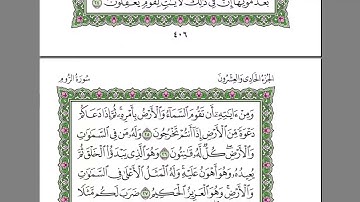 بَعْدَ مَوْتِهَا إِنَّ فِي ذَٰلِكَ لَآيَاتٍ لِّقَوْمٍ يَعْقِلُونَ ٢٤
٤٠٦
الجزء الحادي والعشرون سورة الروم
وَمِنْ ءَايَٰتِهِۦٓ أَن تَقُومَ ٱلسَّمَآءُ وَٱلْأَرْضُ بِأَمْرِهِۦ ثُمَّ إِذَا دَعَاكُمْ
دَعْوَةً مِّنَ ٱلْأَرْضِ إِذَآ أَنتُمْ تَخْرُجُونَ ٢٥ وَلَهُۥ مَن فِي ٱلسَّمَٰوَٰتِ
وَٱلْأَرْضِ كُلٌّ لَّهُۥ قَٰنِتُونَ ٢٦ وَهُوَ ٱلَّذِي يَبْدَؤُا۟ ٱلْخَلْقَ ثُمَّ
يُعِيدُهُۥ وَهُوَ أَهْوَنُ عَلَيْهِ وَلَهُ ٱلْمَثَلُ ٱلْأَعْلَىٰ فِي ٱلسَّمَٰوَٰتِ
وَٱلْأَرْضِ وَهُوَ ٱلْعَزِيزُ ٱلْحَكِيمُ ٢٧ ضَرَبَ لَكُم مَّثَلًا